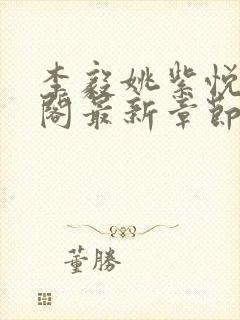 李毅姚紫悦
阁最新章節
董勝